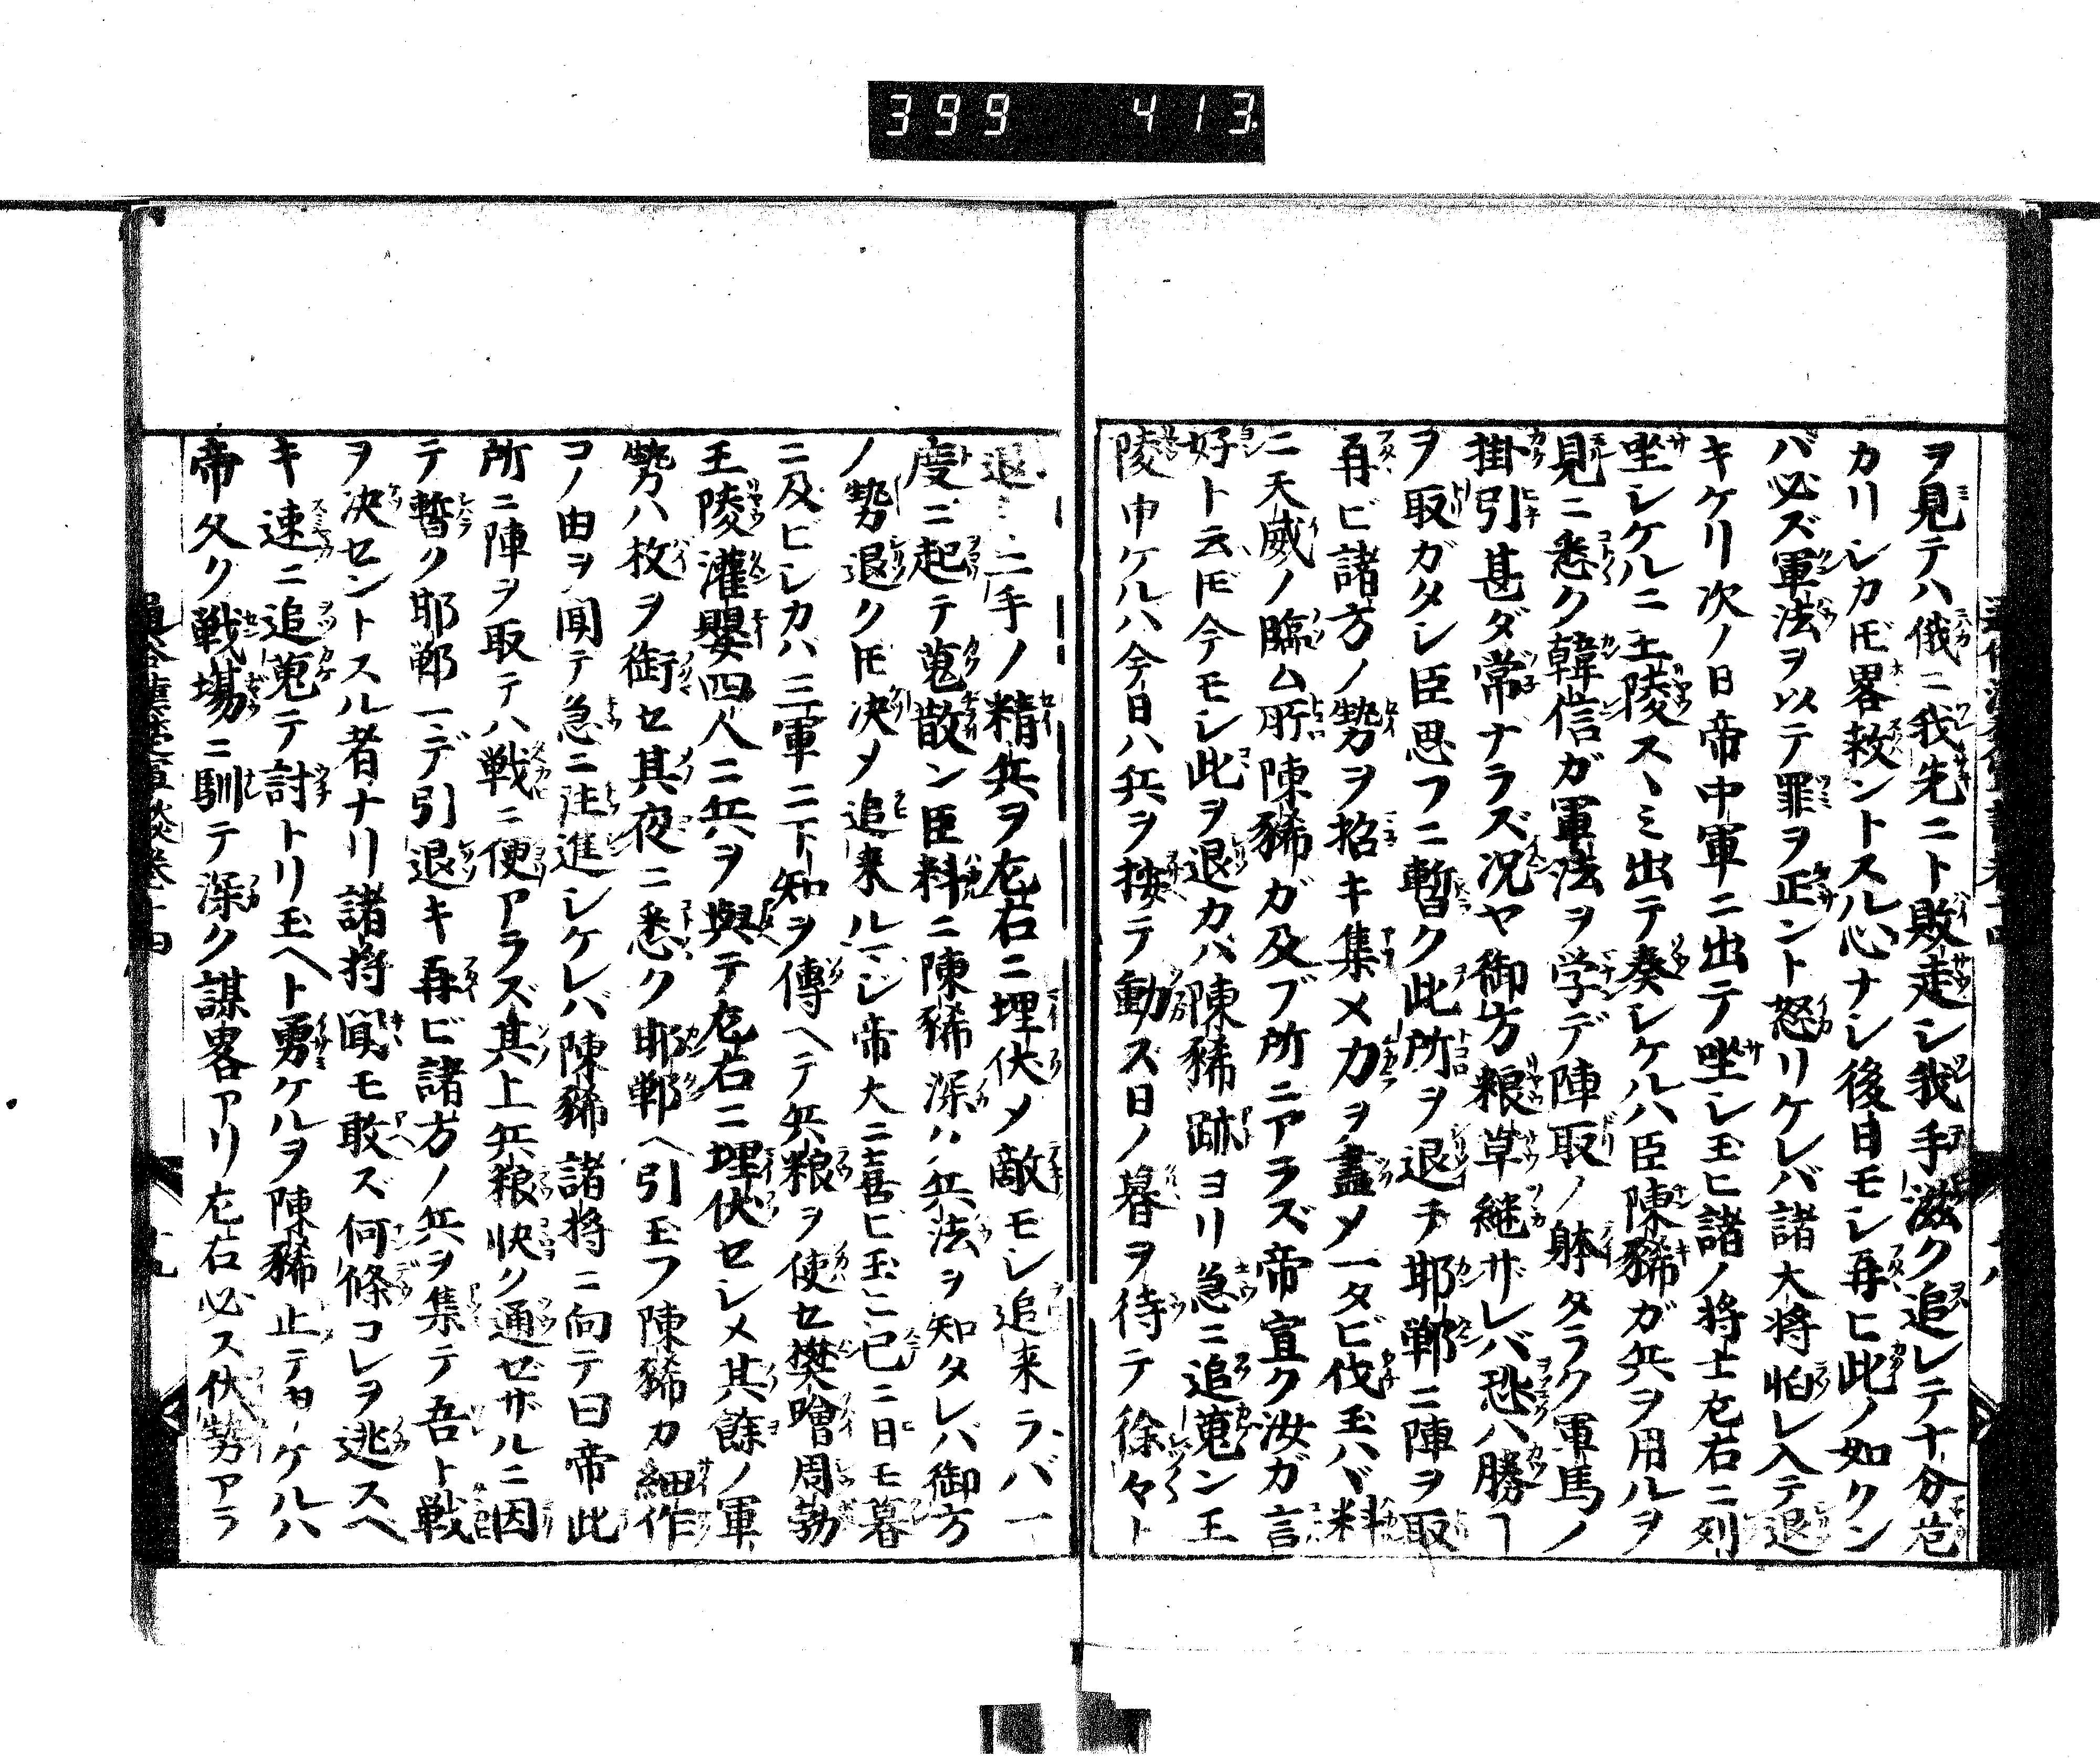 399 413
ヲ見テハ俄ニ我先ニト敗走シ我手滋ク追レテ十分危
カリシカ𪜈畧救ントスル心ナシ後日モシ再ヒ此ノ如クン
バ必ズ軍法ヲ以テ罪ヲ正ント怒リケレバ諸大将怕レ入テ退
キケリ次ノ日帝中軍ニ出テ坐シ玉ヒ諸ノ将士左右ニ列
坐シケルニ王陵スヽミ出テ奏シケルハ臣陳豨ガ兵ヲ用ルヲ
見ニ悉ク韓信ガ軍法ヲ学デ陣取ノ躰タラク軍馬ノ
掛引甚ダ常ナラズ况ヤ御方粮草継ザレバ恐ハ勝ヿ
ヲ取ガタシ臣思フニ暫ク此所ヲ退チ耶鄲ニ陣ヲ取
再ビ諸方ノ勢ヲ招キ集メ力ヲ盡メ一タビ伐玉ハヾ料
ニ天威ノ臨ム所陳豨ガ及ブ所ニアラズ帝宣ク汝ガ言
好ト云𪜈今モシ此ヲ退カバ陳豨跡ヨリ急ニ追蒐ン王
陵申ケルハ今日ハ兵ヲ按テ動ズ日ノ暮ヲ待テ徐々ト
退二手ノ精兵ヲ左右ニ埋伏メ敵モシ追来ラバ一
度ニ起テ蒐散ン臣料ニ陳豨深ハ兵法ヲ知タレバ御方
ノ勢退ク𪜈决メ追来ルマジ帝大ニ喜ビ玉ニ已ニ日モ暮
ニ及ビシカハ三軍ニ下知ヲ傳ヘテ兵粮ヲ使セ樊噲周勃
王陵灌嬰四人ニ兵ヲ與テ左右ニ埋伏セシメ其餘ノ軍
勢ハ枚ヲ銜セ其夜ニ悉ク耶鄲ヘ引玉フ陳豨カ細作
コノ由ヲ聞テ急ニ注進シケレバ陳豨諸将ニ向テ曰帝此
所ニ陣ヲ取テハ戦ニ便アラズ其上兵粮快ク通ゼザルニ因
テ暫ク耶鄲マデ引退キ再ビ諸方ノ兵ヲ集テ吾ト戦
ヲ决セントスル者ナリ諸将聞モ敢ズ何條コレヲ逃スヘ
キ速ニ追蒐テ討トリ玉ヘト勇ケルヲ陳豨止テ申ケルハ
帝久ク戦場ニ馴テ深ク謀畧アリ左右必ス伏勢アラ